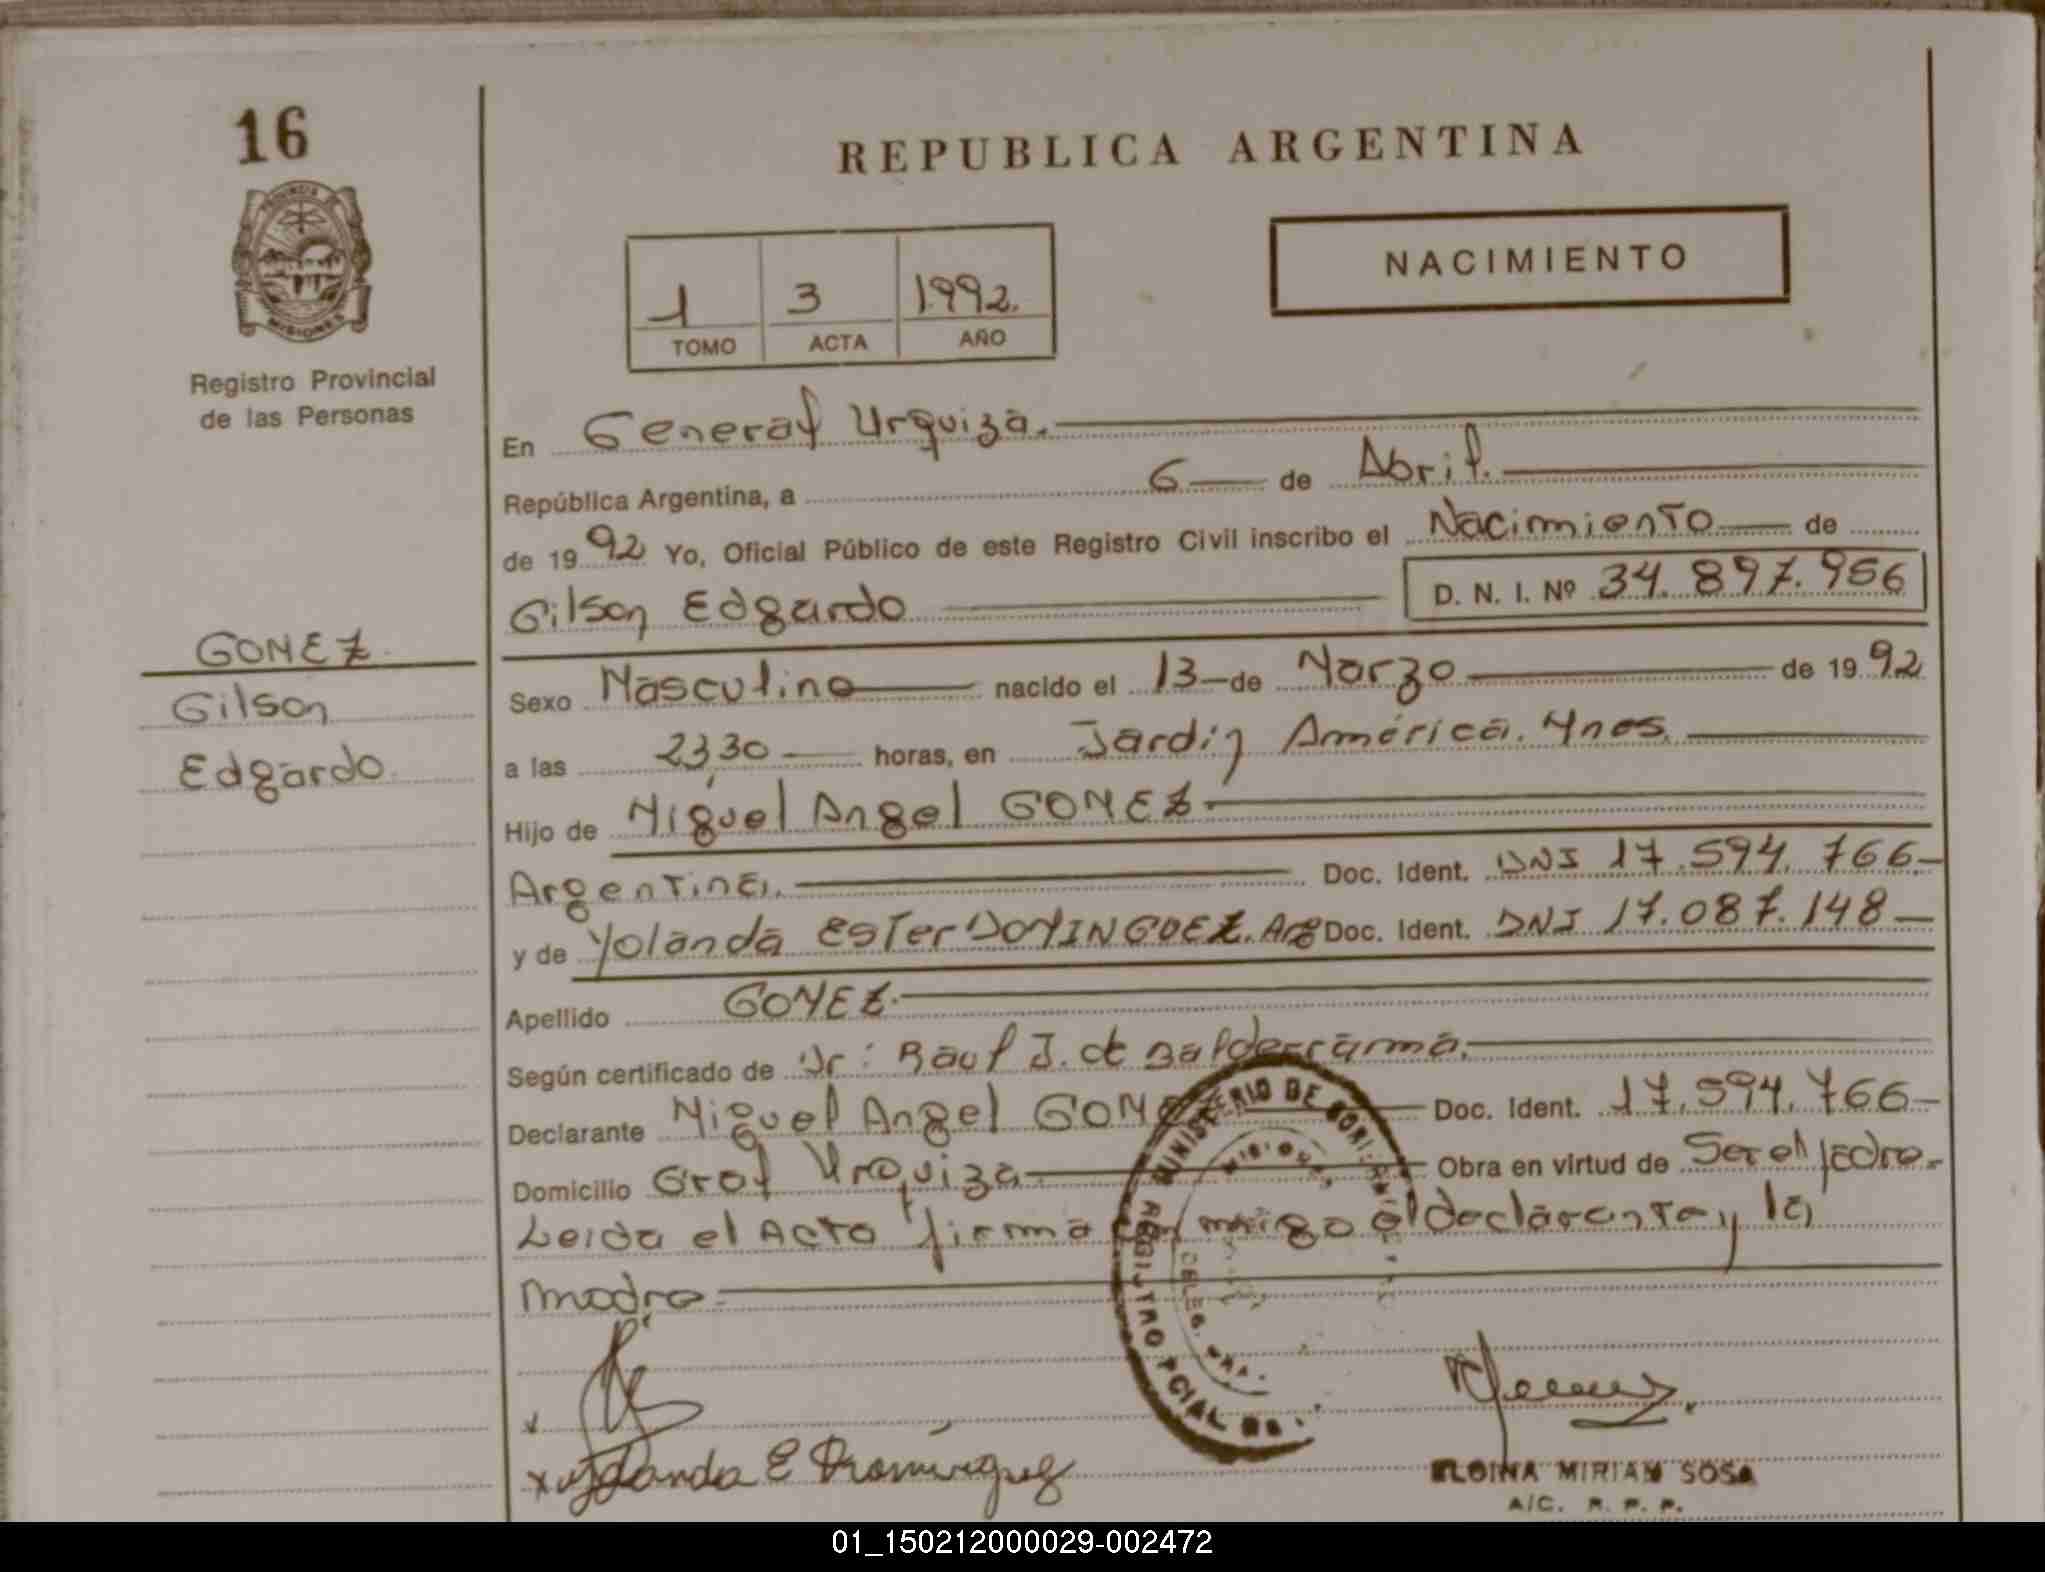 16
REPUBLICA ARGENTINA
PROVINCIA DE
MISIONES
NACIMIENTO
1 3 1992.
TOMO ACTA AÑO
Registro Provincial
de las Personas
En General Urquiza.
República Argentina, a 6 de Abril.
de 1992 Yo, Oficial Público de este Registro Civil inscribo el Nacimiento de
Gilson Edgardo D. N. I. Nº 34.897.956
GOMEZ
Gilson
Edgardo.
Sexo Masculino nacido el 13 de Marzo de 1992
a las 23,30 horas, en Jardín América. Mnes.
Hijo de Miguel Angel GOMEZ
Argentina. Doc. Ident. DNI 17.594.766
y de Yolanda Ester DOMINGUEZ. Arg Doc. Ident. DNI 17.087.148
Apellido GOMEZ.
Según certificado de Dr: Raul J. de Balderrama.
Declarante Miguel Angel GOMEZ Doc. Ident. 17.594.766
Domicilio Gral Urquiza Obra en virtud de Ser el padre.
Leida el Acto firma conmigo el declarante y la
madre
MINISTERIO DE
REGISTRO PCIAL DE
Yolanda E Dominguez
ELOINA MIRIAM SOSA
A/C. R. P. P.
01_150212000029-002472